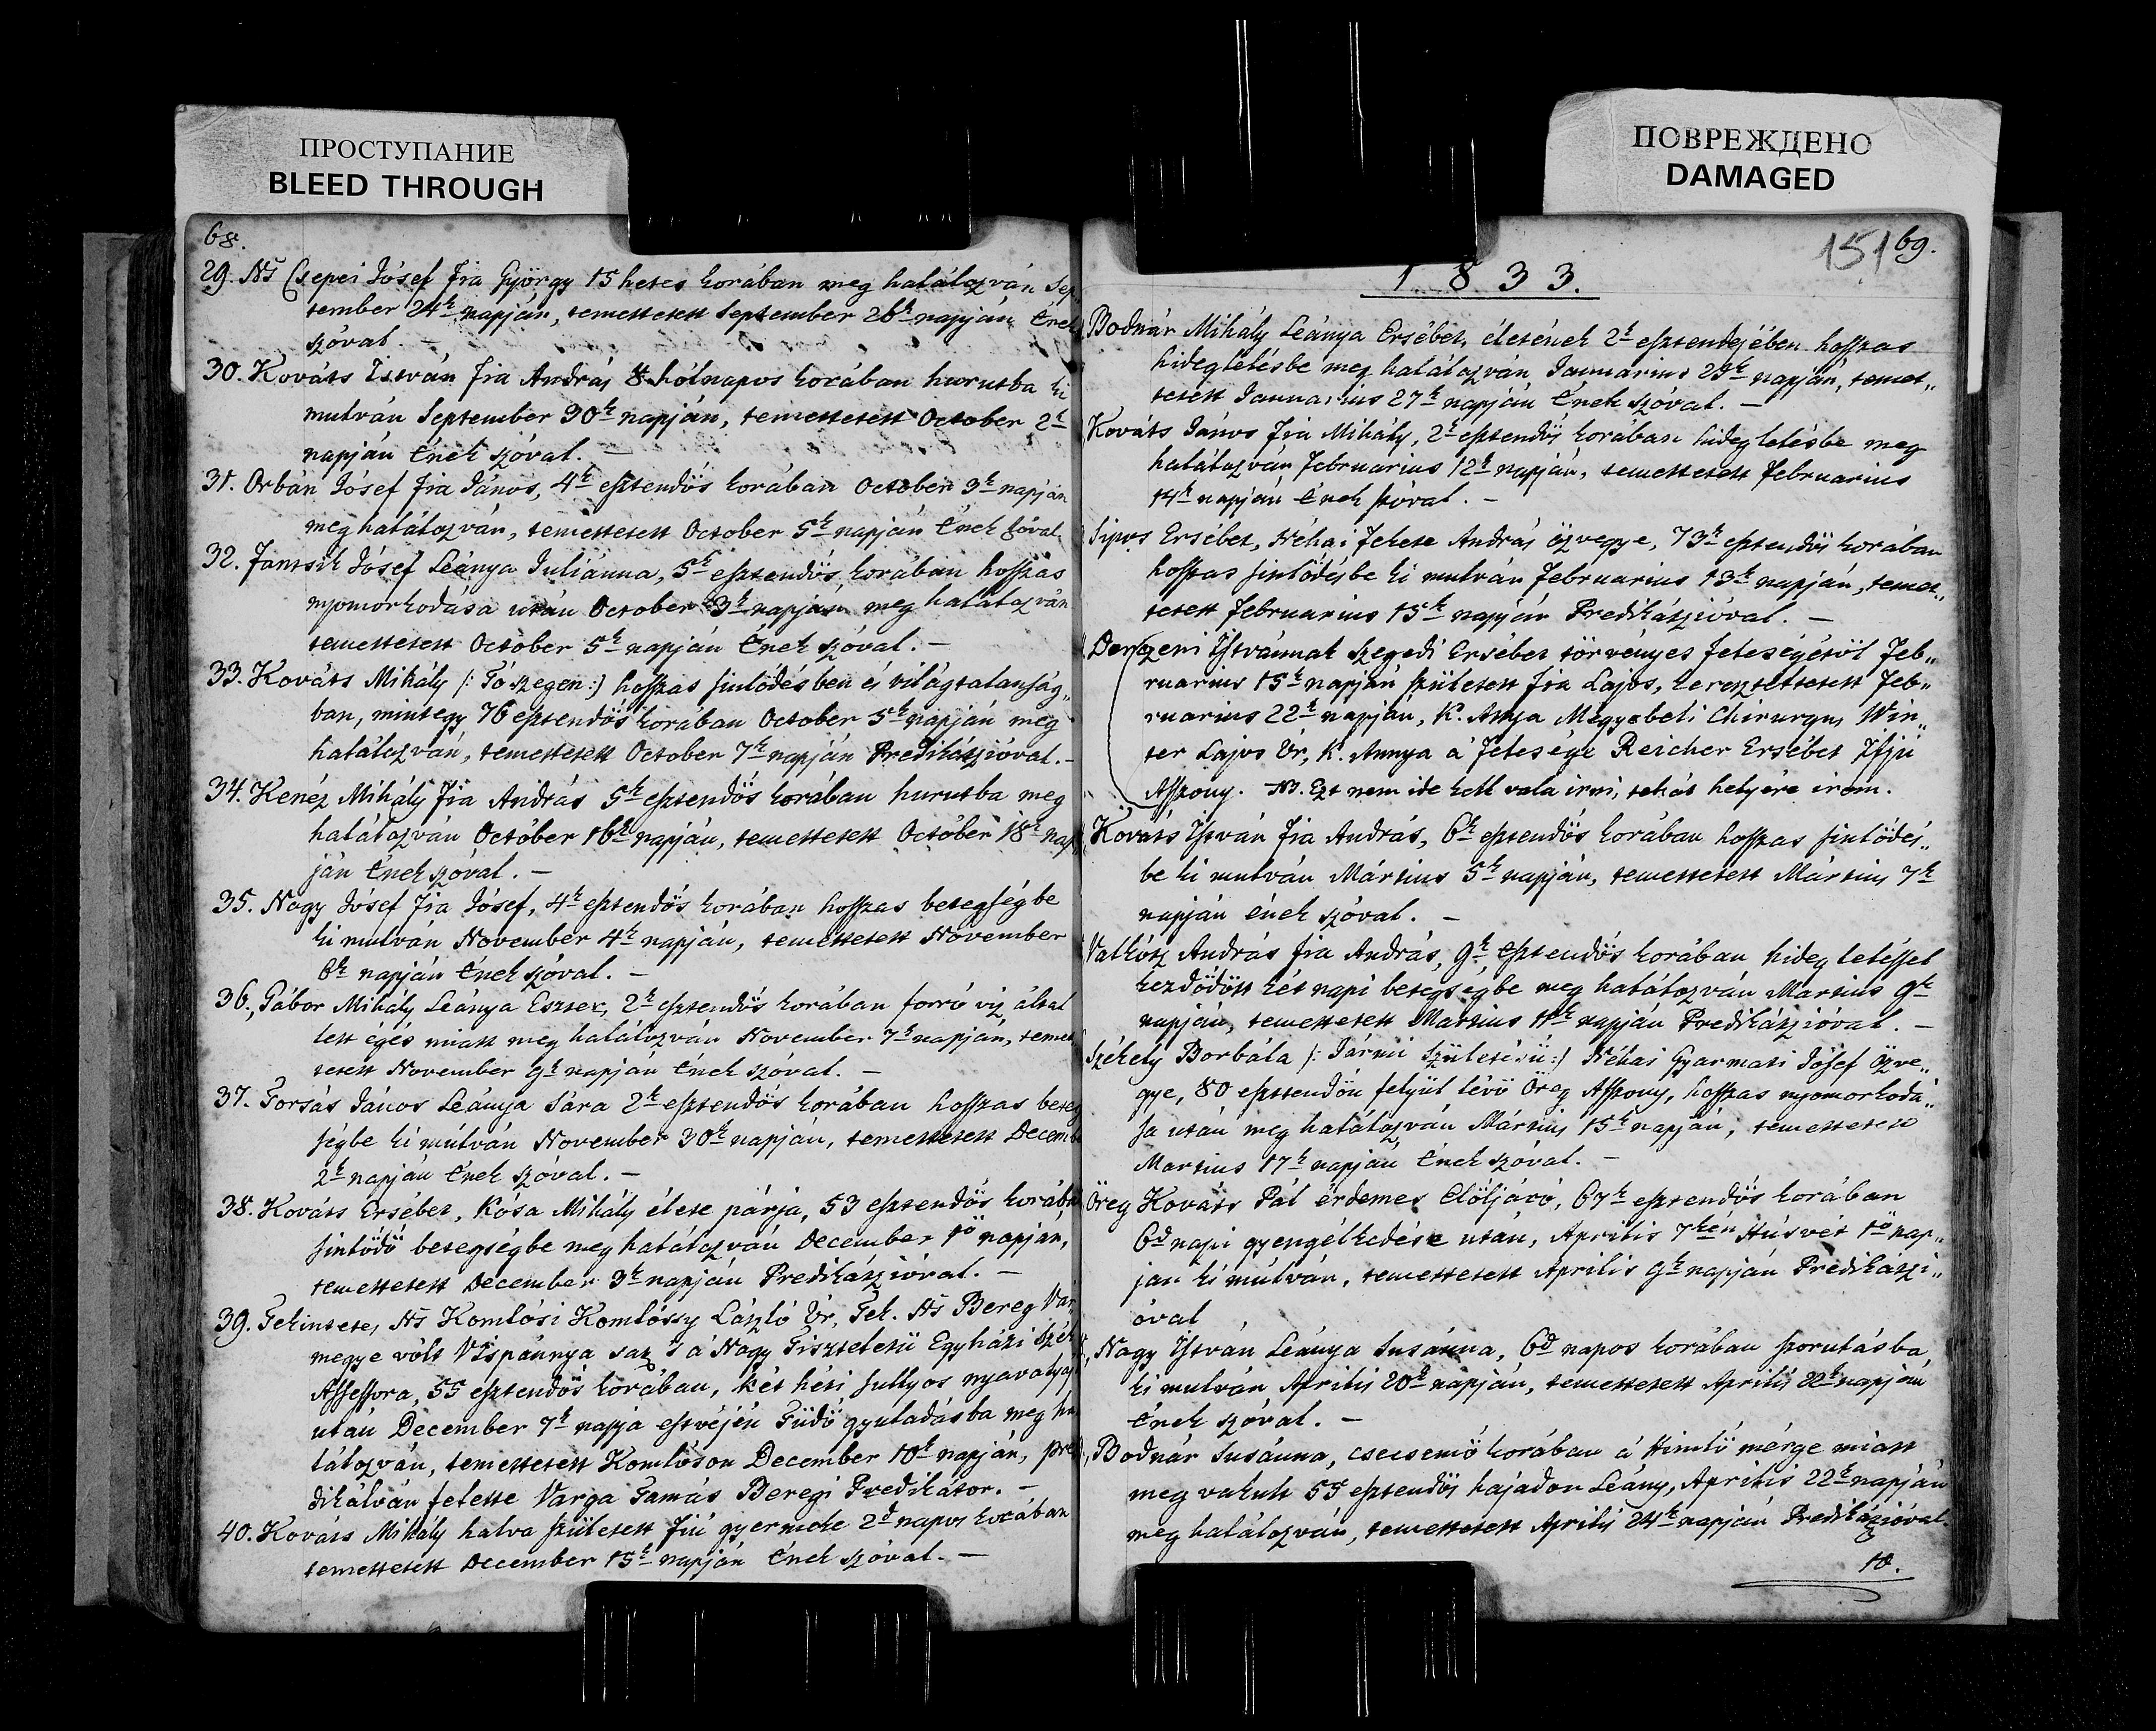 ПРОСТУПАНИЕ
BLEED THROUGH
68.
29. Ns Csepei Jósef fia György 15 hetes korában meg halálozván Sep„
tember 24k napján, temettetett September 26k napján Ének
szóval. –
30. Kováts István fia András 8 hólnapos korában hurutba ki
mulván September 30k napján, temettetett October 2k
napján Ének szóval. –
31. Orbán Jósef fia János, 4k esztendős korában October 3k napján
meg halálozván, temettetett October 5k napján Ének szóval
32. Jantsik Jósef Leánya Juliánna, 5k esztendős korában hosszas
nyomorkodása után October 3k napján meg halálozván
temettetett October 5k napján Ének szóval. –
33. Kováts Mihály /: Tó szegen :/ hosszas sinlődésben és világtalanság„
ban, mintegy 76 esztendős korában October 5k napján meg
halálozván, temettetett October 7k napján Predikátzióval. –
34. Kenéz Mihály fia András 5k esztendős korában hurutba meg
halálozván October 16k napján, temettetett October 18k nap„
ján Ének szóval. –
35. Nagy Jósef fia Jósef, 4k esztendős korában hosszas betegségbe
ki mulván November 4k napján, temettetett November
6k napján Ének szóval. –
36. Gábor Mihály Leánya Eszter, 2k esztendős korában forró viz által
lett égés miatt meg halálozván November 7k napján, temet
tetett November 9k napján Ének szóval. –
37. Forsás János Leánya Sára 2k esztendős korában hosszas beteg
ségbe ki múlván November 30k napján, temettetett Decemb
2k napján Ének szóval. –
38. Kováts Ersébet, Kósa Mihály élete párja, 53 esztendős korába
sinlődő betegségbe meg halálozván December 1ő napján,
temettetett December 3k napján Predikátzióval. –
39. Tekintetes Ns Komlósi Komlóssy László Úr, Tek. Ns Bereg Var„
megye vólt VIspánnya sat. 's á Nagy Tiszteletü Egyházi Szék
Assessora, 55 esztendős korában, két héti sullyos nyavalyája
után December 7k napja estvéjén Tüdő gyuladásba meg ha
lálozván, temettetett Komlóson December 10k napján, pre
dikálván felette Varga Tamás Beregi Predikátor. –
40. Kováts Mihály halva született fiú gyermeke 2d napos korában
temettetett December 15k napján Ének szóval. –
ПОВРЕЖДЕНО
DAMAGED
151 69.
1833.
Bodnár Mihály Leánya Ersébet, életének 2k esztendejében hosszas
hideglelésbe meg halálozván Januarius 25k napján, temet„
tetett Januarius 27k napján Ének szóval. –
Kováts János fia Mihály, 2k esztendős korában hideglelésbe meg
halálozván februarius 12k napján, temettetett februarius
14k napján Ének szóval. –
Sipos Ersébet, Néhai Fekete András özvegye, 73k esztendős korában
hosszas sinlődésbe ki mulván februarius 13k napján, temet„
tetett februarius 15k napján Predikátzióval. –
Deregzeni Istvánnak Szegedi Ersébet törvényes feleségétől Feb„
ruarius 15k napján született fia Lajos, kereszteltetett Feb„
ruarius 22k napján, K. Attya Megyebeli Chirurgus Win„
ter Lajos Úr, K. Annya á felesége Reicher Ersébet Ifjú
Asszony. NB. Ezt nem ide kell vala irni, tehát helyére irom.
Kováts István fia András, 6k esztendős korában hosszas sinlődés„
be ki mulván Mártius 5k napján, temettetett Mártius 7k
napján ének szóval. –
Valkósz András fia András, 9k esztendős korában hideg leléssel
kezdődött két napi betegségbe meg halálozván Martius 9k
napján, temettetett Martius 11k napján Predikátzióval. –
Székely Borbála /: Jármi Születésü :/ Néhai Gyarmati Jósef özve„
gye, 80 esztendőn felyül lévő Öreg Asszony, hosszas nyomorkodá„
sa után meg halálozván Mártius 15k napján, temettetett
Martius 17k napján Ének szóval. –
Öreg Kováts Pál érdemes Elöljáró, 67k esztendős korában
6d napi gyengélkedése után, Aprilis 7kén Húsvét 1ő nap„
ján ki múlván, temettetett Aprilis 9k napján Predikátzi„
óval
Nagy István Leánya Susánna, 6d napos korában szorulásba
ki mulván Aprilis 20k napján, temettetett Aprilis 22k napján
Ének szóval. –
Bodnár Susánna, csecsemő korában á Himlő mérge miatt
meg vakult 55 esztendős hajadon Leány, Aprilis 22k napján
meg halálozván, temettetett Aprilis 24k napján Predikátzióval.
10.